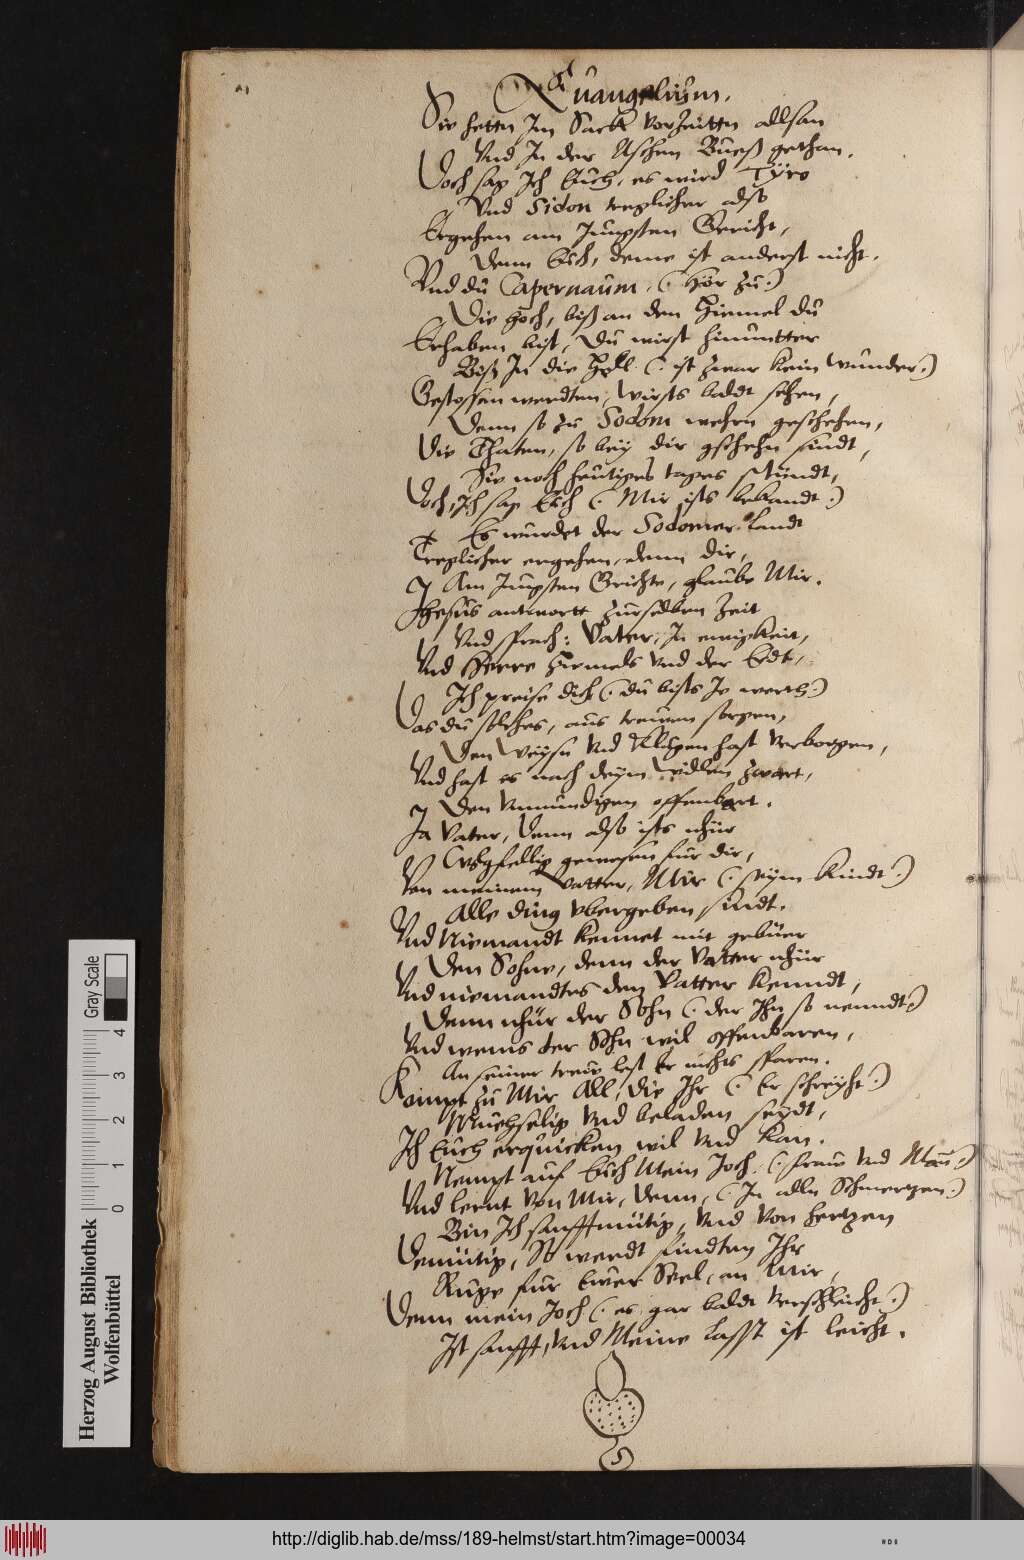 Euangelium.
Sie hettn Im Sack vorzeittn allsan
Vnd In der Aschen Bueß gethan.
Doch sag Ich Euch, es wird Tÿro
Vnd Sidon treglicher also
Ergehen am Jungsten Gericht,
Denn Euch, deme ist anderst nicht.
Vnd du Capernaum, (: Hör zu :)
Die hoch, biß an den Himel du
Erhaben bist, Du wirst hinuntter
Biß In die Hell (: ist zwar kein wunder :)
Gestossen werdten, wirsts baldt sehen,
Denn so zu Sodom wehrn geschehen,
Die Thaten, so bey dir gschehn sindt,
Sie noch heutiges tages stündt,
Doch, Ich sag Euch (: Mir ists bekandt :)
Es wurdet der Sodomer Landt
Treglicher ergehen, denn dir,
Am Jungsten Grichte, glaube Mir.
Jhesus antwortt zurselben Zeit
Vnd sprach: Vater, In ewigkeit,
Vnd Herre Himels vnd der Erdt,
Ich preise dich (: du bists Je werth :)
Das du solches, aus trewen sorgen,
Den Weysn vnd Klugen hast verborgen,
Vnd hast es nach deym willen zwart,
Den Vnmundigen offenbart.
Ja Vater, denn also ists nhür
Wolgfellig gewesen für dir,
Von meinem Vatter, Mir (: seym Kindt :)
Alle ding vbergeben sindt.
Vnd Niemandt kennet mit gebüer
Den Sohne, denn der Vatter nhür
Vnd niemandtes den Vatter kenndt,
Denn nhür der Sohn (: der Ihn so nenndt :)
Vnd wems der Sohn wil offenbaren,
An seiner trew lest Er nichts sparen.
Kompt zu Mir All, die Ihr (: Er schreyht :)
Muehselig vnd beladen seydt,
Ich Euch erquicken wil vnd kan.
Nempt auf Euch Mein Joch (: fraw vnd Man :)
Vnd lernt von Mir, denn, (: In alln Schmertzen :)
Bin Ich sanfftmütig, vnd von hertzen
Demütig, So werdt findten Ihr
Ruge für Ewer Seel, an Mir,
Denn mein Joch (: es gar baldt verschleicht :)
Ist sanfft, vnd Meine Lasst ist leicht.
Herzog August Bibliothek
Wolfenbüttel
0 1 2 3 4
Gray Scale
http://diglib.hab.de/mss/189-helmst/start.htm?image=00034